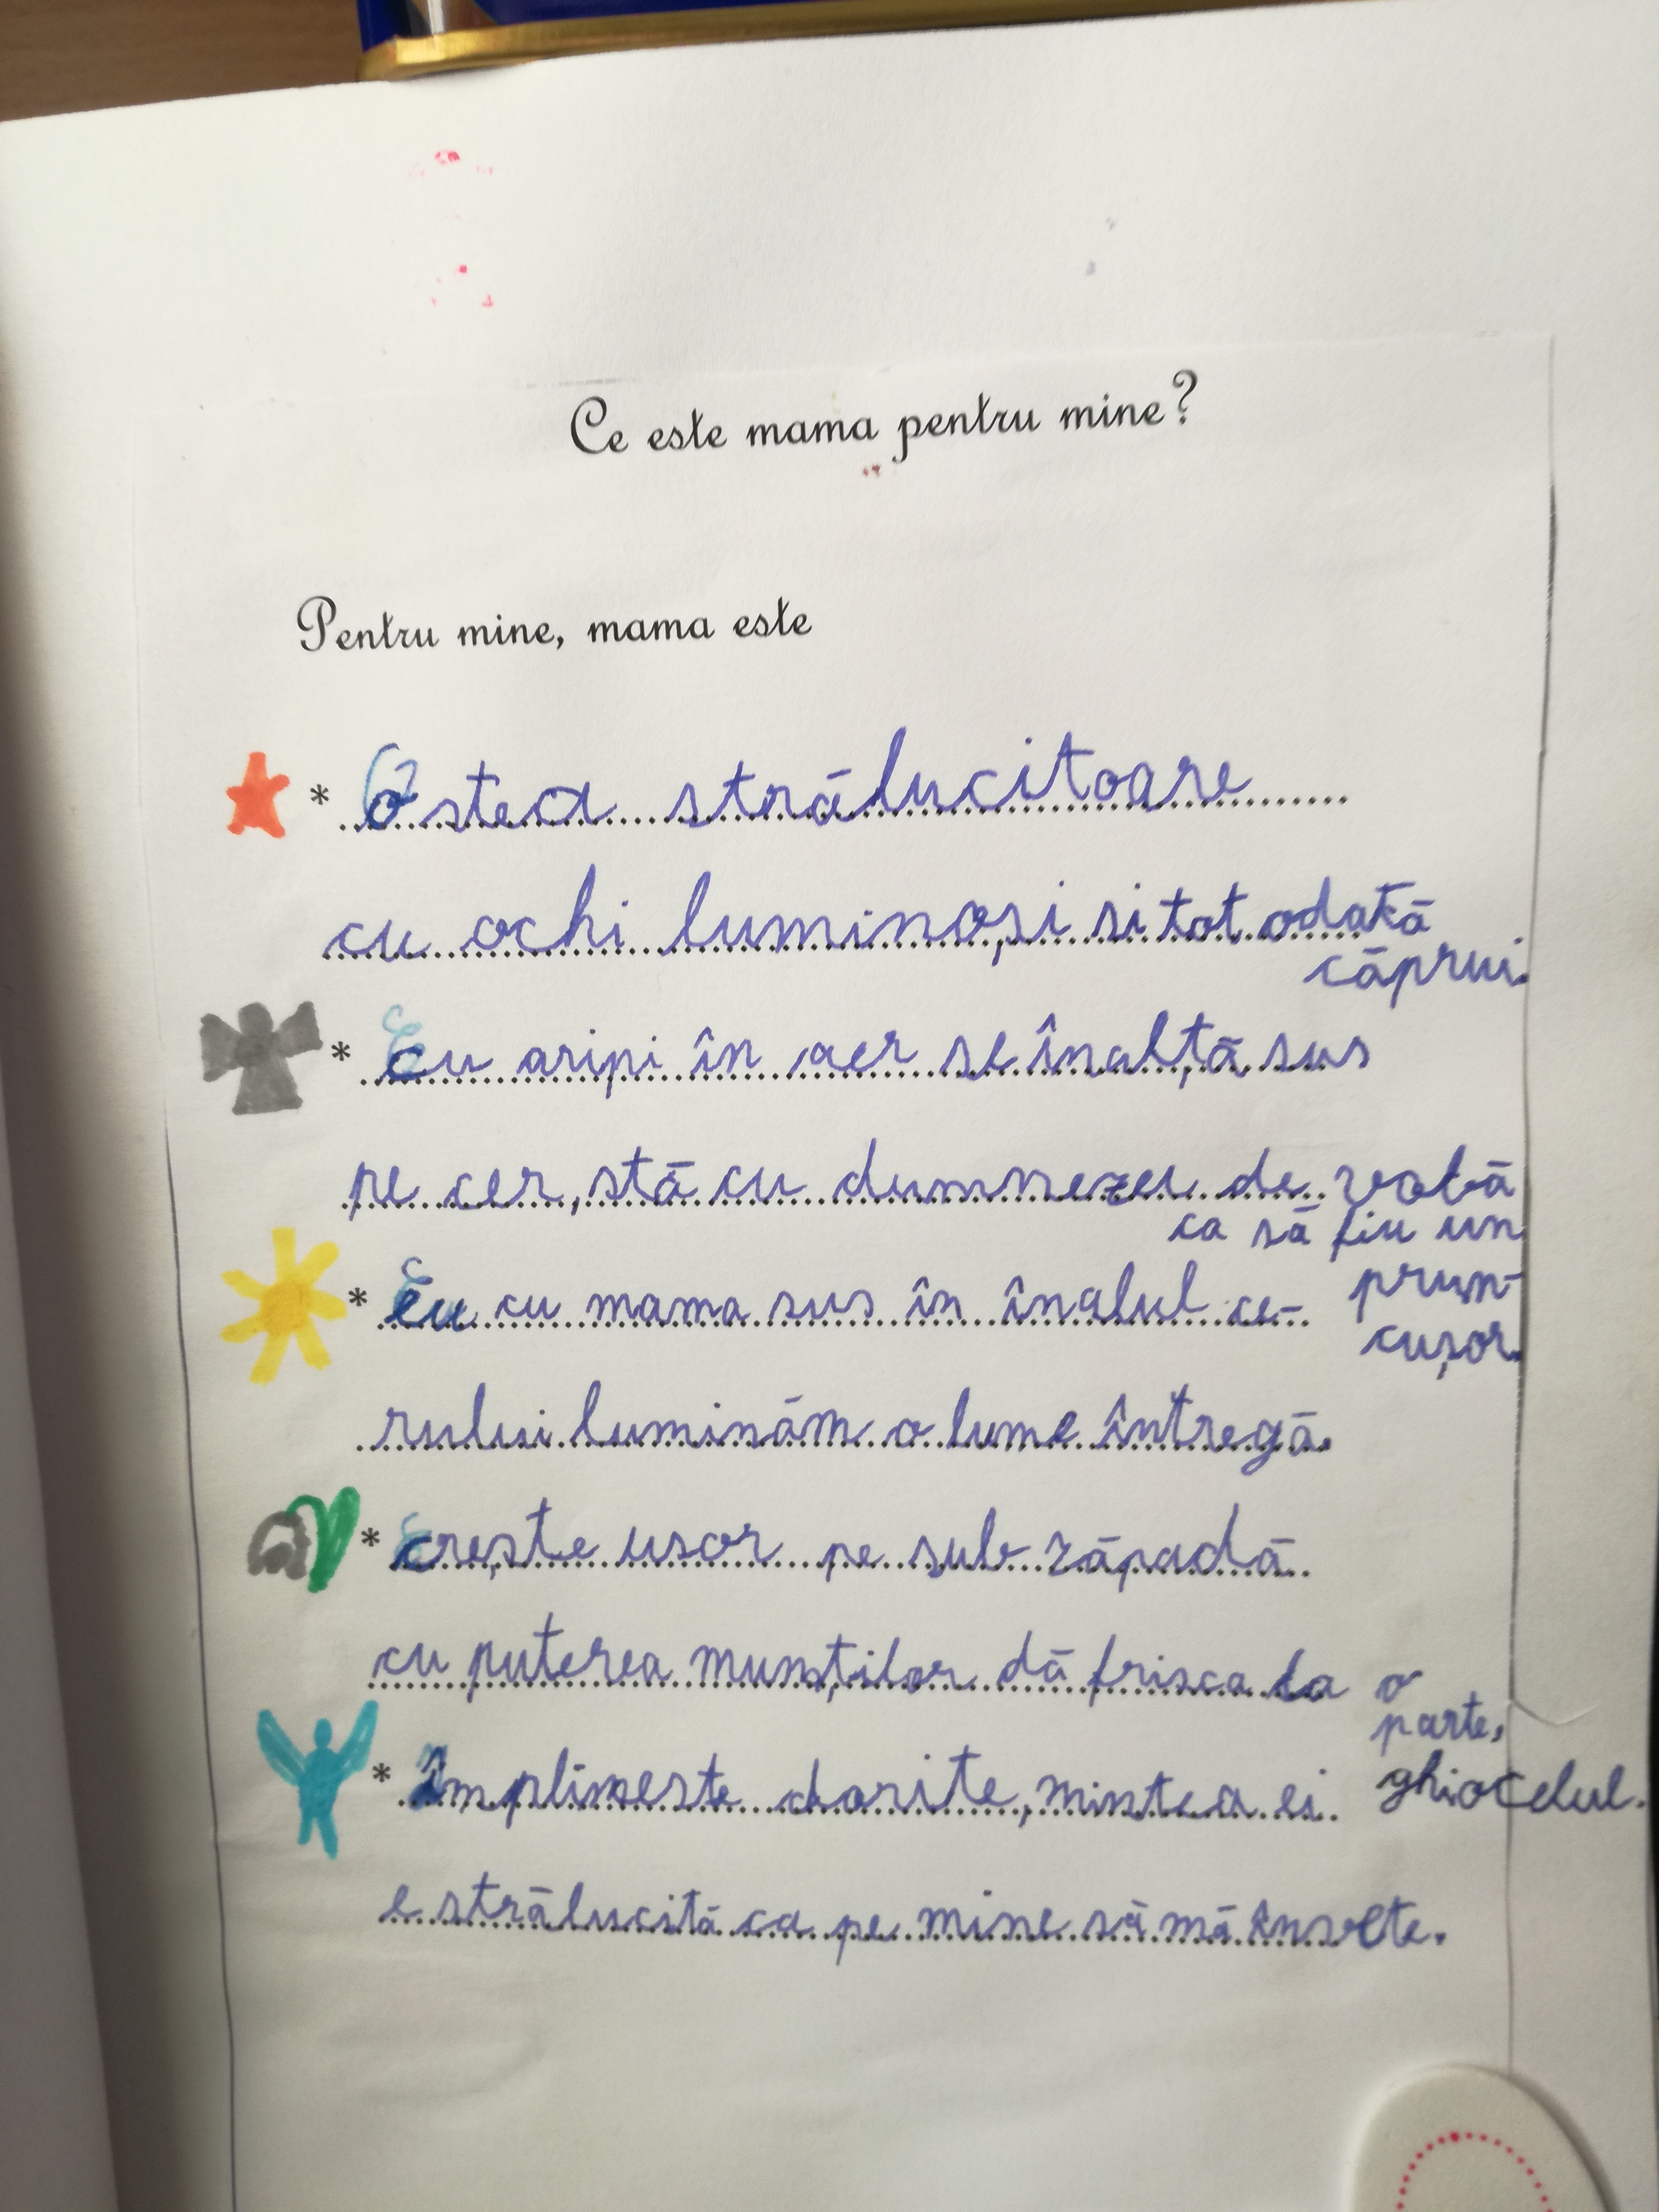 Ce este mama pentru mine?
Pentru mine, mama este
* O stea strălucitoare
cu ochi luminoși si tot odată
căprui.
* Cu aripi în aer se înalță sus
pe cer, stă cu dumnezeu de vorbă
ca să fiu un
prun-
cușor.
* Eu cu mama sus în înalul ce-
rului luminăm o lume întregă.
* Crește usor pe sub zăpadă
cu puterea munților dă frisca la o
parte,
ghiocelul.
* Împlineste dorite, mintea ei
e strălucită ca pe mine să mă învete.